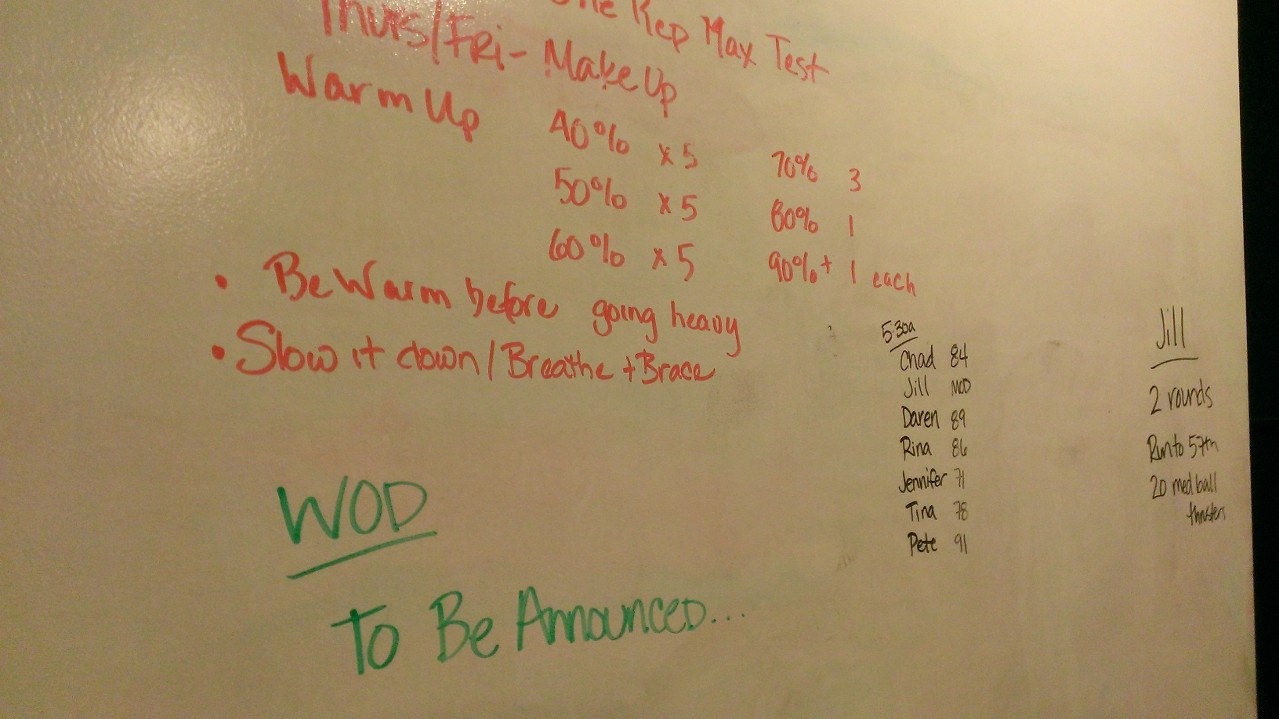 One Rep Max Test
Thurs/Fri - Make Up
Warm Up
40% x 5 70% 3
50% x 5 80% 1
60% x 5 90%+ 1 each
• Be Warm before going heavy
• Slow it down / Breathe + Brace
WOD
To Be Announced...
5:30a
Chad 84
Jill MOD
Daren 89
Rina 86
Jennifer 71
Tina 78
Pete 91
Jill
2 rounds
Run to 57th
20 med ball
thrusters